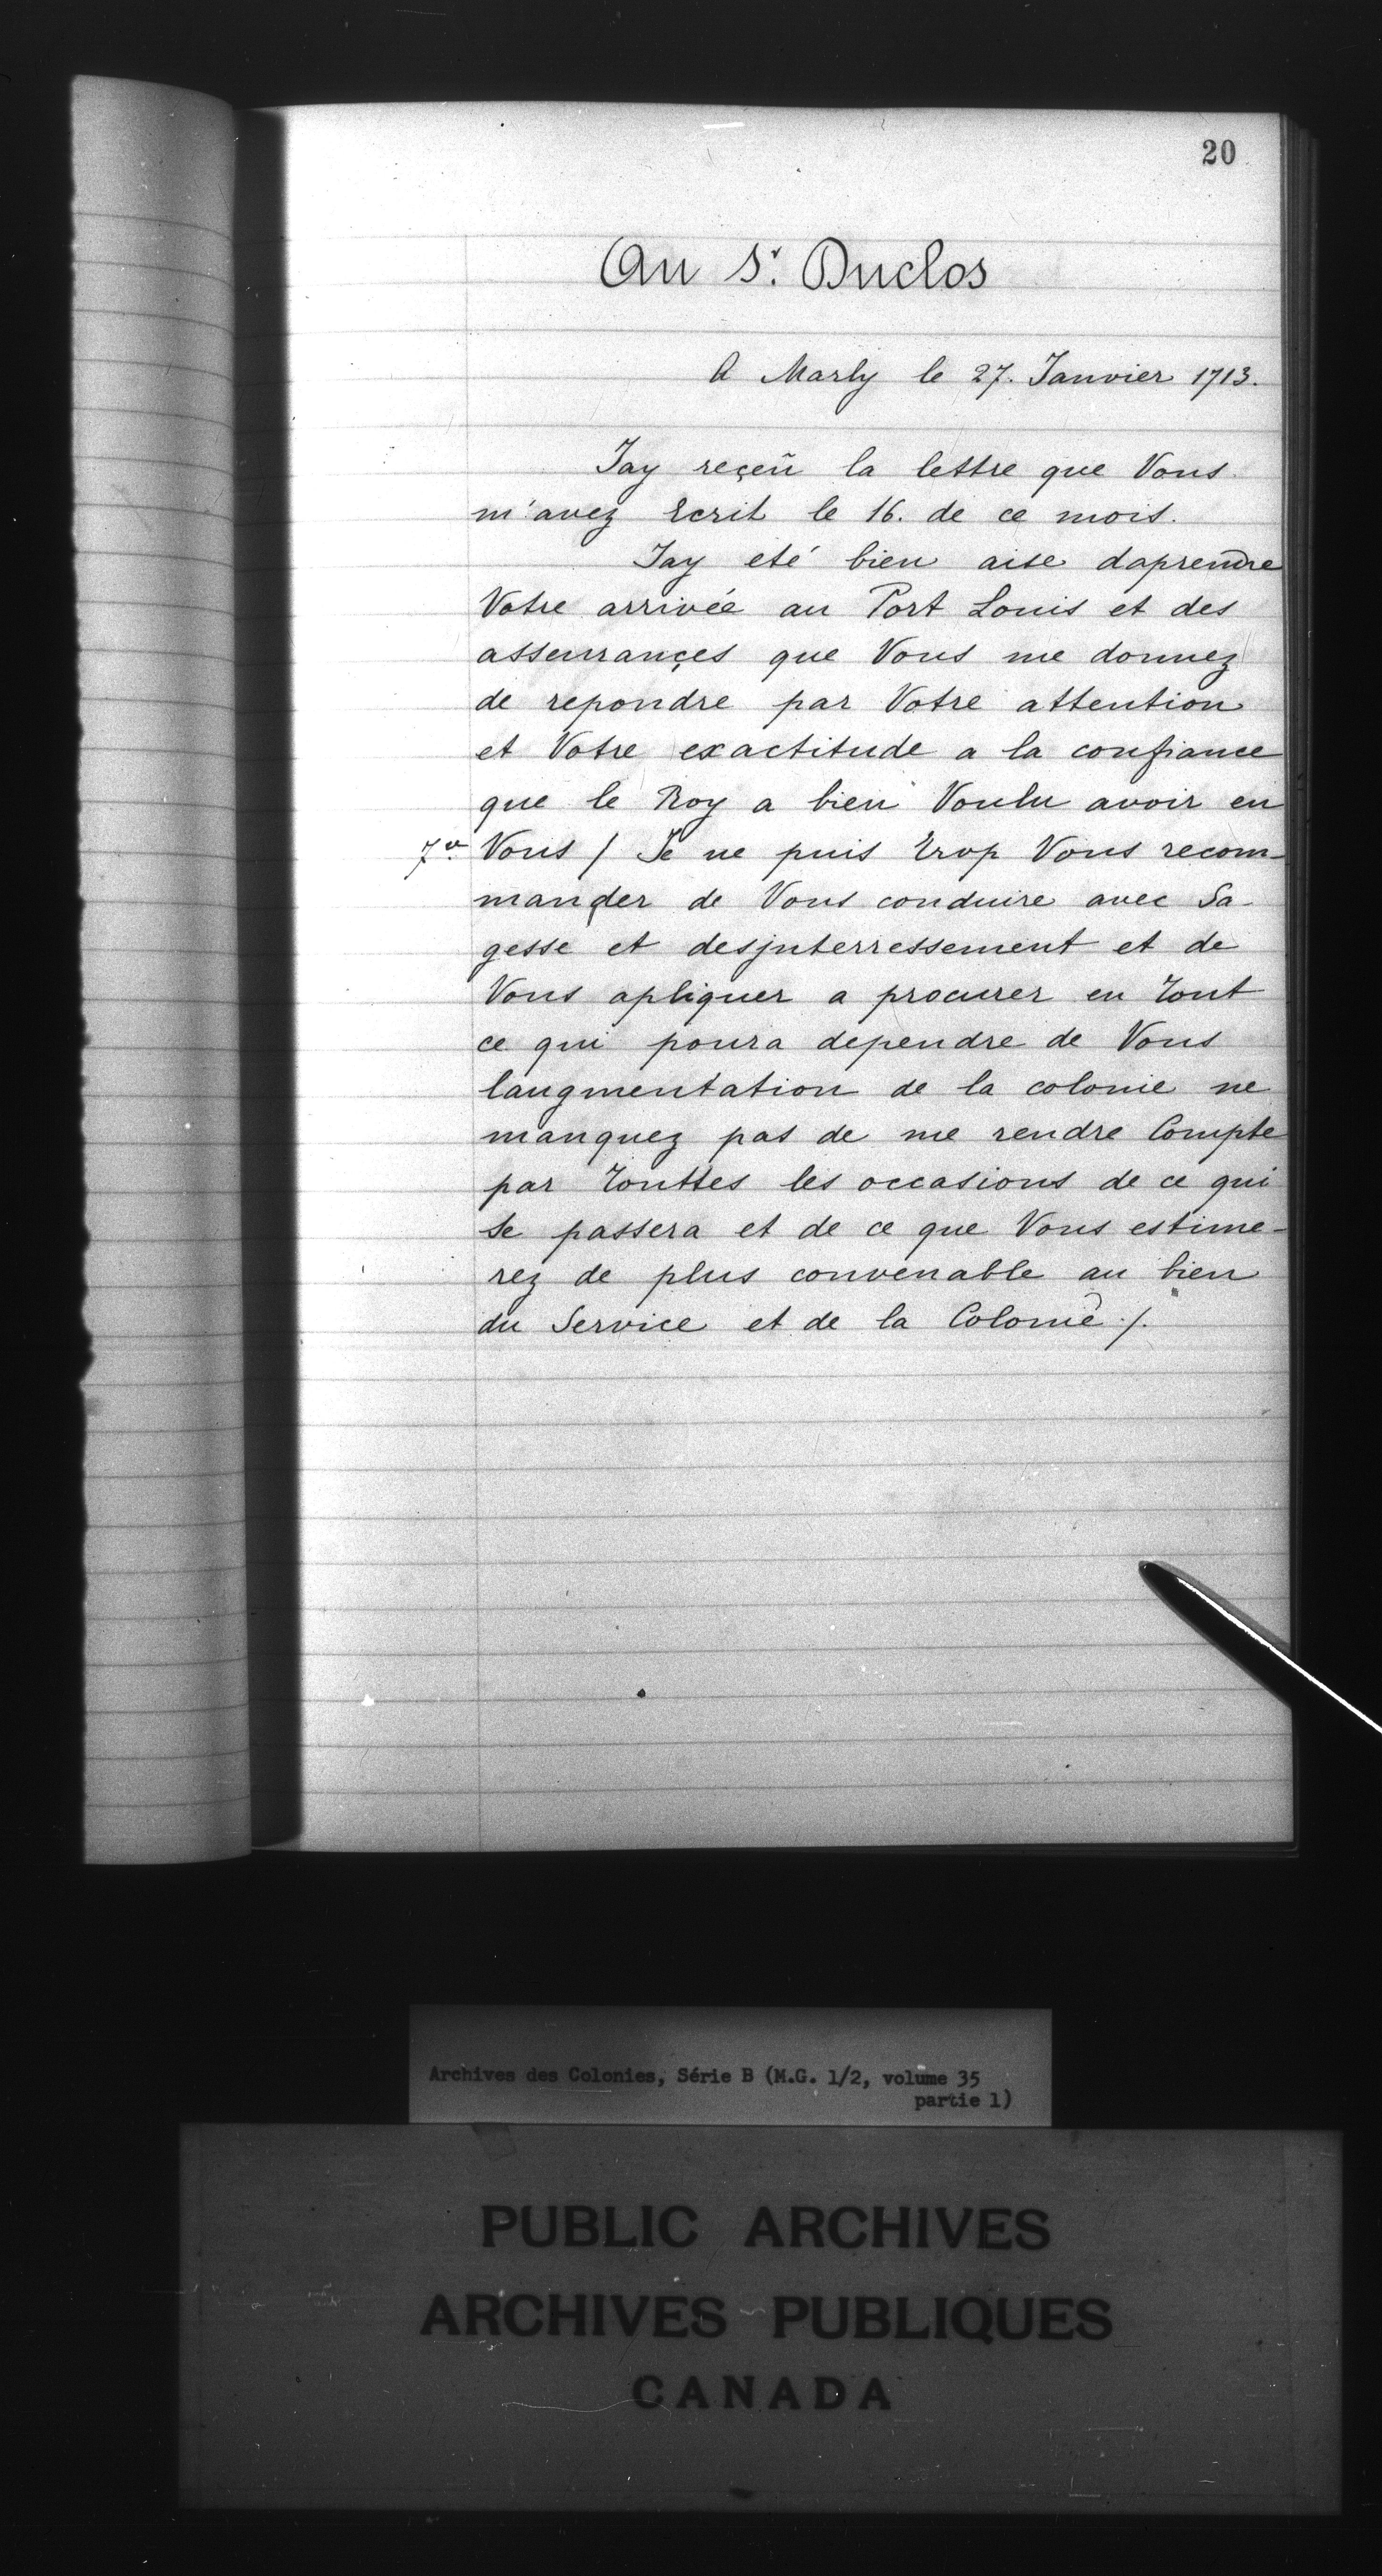 20
Au Sr. Duclos
A Marly le 27. Janvier 1713.
Jay reçeü la lettre que Vous
m'avez Ecrit le 16. de ce mois.
Jay eté bien aise daprendre
Votre arrivée au Port Louis et des
asseurrançes que Vous me donnez
de repondre par Votre attention
et Votre exactitude a la confiance
que le Roy a bien Voulu avoir en
7vo. Vous / Je ne puis trop Vous recom-
mander de Vous conduire avec Sa-
gesse et desjnterressement et de
Vous apliquer a procurer en tout
ce qui poura dependre de Vous
laugmentation de la colonie ne
manquez pas de me rendre Compte
par touttes les occasions de ce qui
se passera et de ce que Vous estime-
rez de plus convenable au bien
du Service et de la Colonie ./.
Archives des Colonies, Série B (M.G. 1/2, volume 35
partie 1)
PUBLIC ARCHIVES
ARCHIVES PUBLIQUES
CANADA